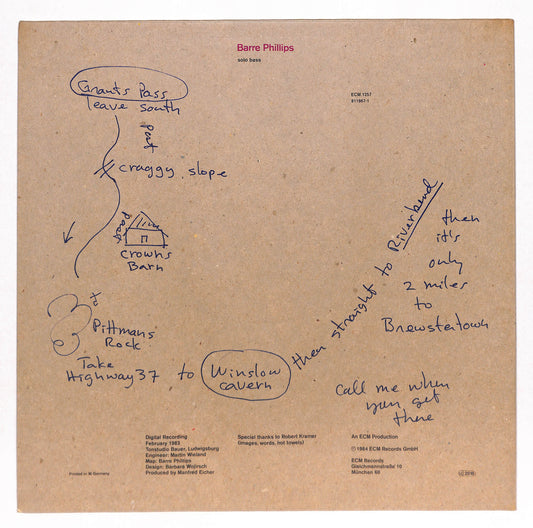 Barre Phillips
solo bass
ECM 1257
811967-1
Grants Pass
leave south
past
craggy slope
past
Crowns
Barn
to
Pittmans
Rock
Take
Highway 37 to Winslow
cavern
then straight to Riverbend
then
it's
only
2 miles
to
Brewstertown
call me when
you get
there
Digital Recording
February 1983
Tonstudio Bauer, Ludwigsburg
Engineer: Martin Wieland
Map: Barre Phillips
Design: Barbara Wojirsch
Produced by Manfred Eicher
Special thanks to Robert Kramer
(images, words, hot towels)
An ECM Production
℗ 1984 ECM Records GmbH
ECM Records
Gleichmannstraße 10
München 60
Printed in W.Germany